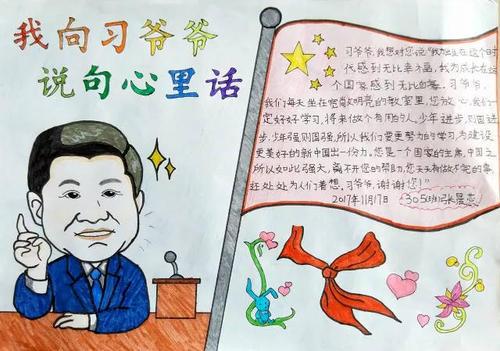 我向习爷爷
说句心里话
习爷爷,我想对您说:"我为生在这个时
代感到无比幸福,我为成长在这
个国家感到无比自豪。习爷爷,
我们每天坐在宽敞明亮的教室里,您放心,我们一
定好好学习,将来做个有用的人。少年进步,则国进
步,少年强则国强,所以我们需更努力的学习,为建设
更美好的新中国出一份力。您是一个国家的主席,中国之
所以如此强大,离不开您的帮助,您天天有做不完的事
处处为人们着想,习爷爷,谢谢您!"
2017年11月17日 305班